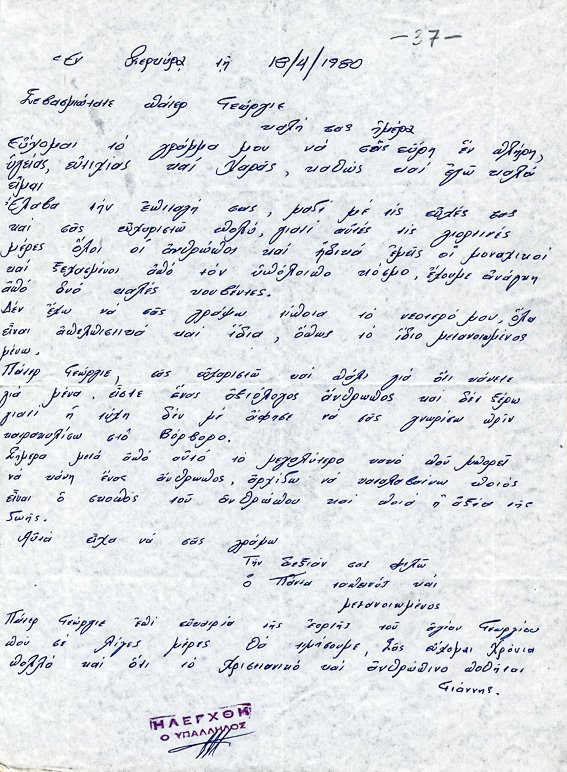 -37-
Ἐν Κερκύρᾳ τῇ 18/4/1980
Σεβασμιώτατε πάτερ Γεώργιε
καλή σας ἡμέρα
Εὔχομαι τό γράμμα μου νά σᾶς εὕρη ἐν πλήρη,
ὑγείας, εὐτυχίας καί χαρᾶς, καθώς καί ἐγώ καλά
εἶμαι
Ἔλαβα τήν ἐπιταγή σας, μαζί μέ τίς εὐχές σας
καί σᾶς εὐχαριστῶ πολύ, γιατί αὐτές τίς γιορτινές
μέρες ὅλοι οἱ ἄνθρωποι καί ἠδικά ἐμεῖς οἱ μοναχικοί
καί ξεχασμένοι ἀπό τόν ὑπόλοιπο κόσμο, ἔχουμε ἀνάγκη
ἀπό δυό καλές κουβέντες.
Δέν ἔχω νά σᾶς γράψω τίποτα τό νεοτερό μου, ὅλα
εἶναι ἀπελπιστικά καί ἴδια, ὅπως τό ἴδιο μετανοιωμένος
μένω.
Πάτερ Γεώργιε, σᾶς εὐχαριστῶ καί πάλι γιά ὅτι κάνετε
γιά μένα. εἶστε ἕνας ἀξιόλογος ἄνθρωπος καί δέν ξέρω
γιατί ἡ τύχη δέν μέ ἄφησε νά σᾶς γνωρίσω πρίν
κυλίσω στό Βόρβορο.
Σήμερα μετά ἀπό αὐτό τό μεγαλύτερο κακό πού μπορεῖ
νά κάνη ἕνας ἄνθρωπος, ἀρχίζω νά καταλαβαίνω ποιός
εἶναι ὁ σκοπός τοῦ ἀνθρώπου καί ποιά ἡ ἀξία τῆς
ζωῆς.
Αὐτά εἶχα νά σᾶς γράψω
Τήν δεξιάν σας φιλῶ
ὁ Πάντα ταπεινός καί
μετανοιωμένος
Πάτερ Γεώργιε ἐπί εὐκαιρία τῆς ἑορτῆς τοῦ ἁγίου Γεωργίου
πού σέ λίγες μέρες θά τιμήσουμε, Σᾶς εὔχομαι Χρόνια
πολλά καί ὅτι τό Χριστιανικό καί ἀνθρώπινο ποθῆται
Γιάννης.
ΗΛΕΓΧΘΗ
Ο ΥΠΑΛΛΗΛΟΣ